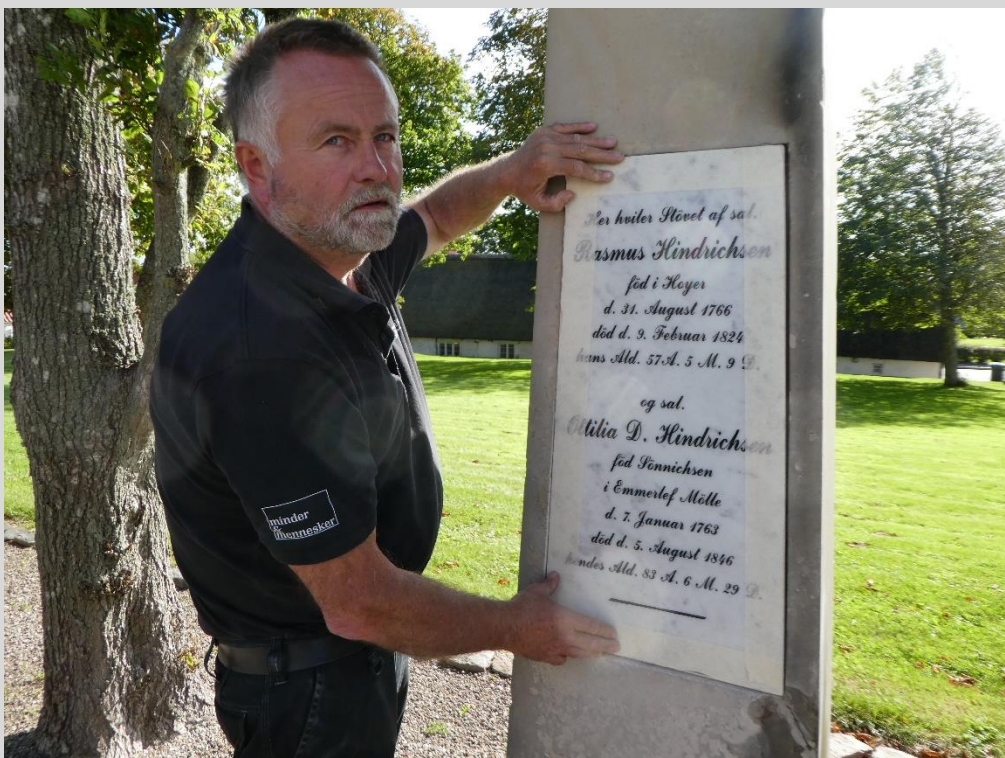 Her hviler Stövet af sal.
Rasmus Hindrichsen
föd i Hoyer
d. 31. August 1766
död d. 9. Februar 1824
hans Ald. 57 A. 5 M. 9 D.
og sal.
Ottilia D. Hindrichsen
föd Sönnichsen
i Emmerlef Mölle
d. 7. Januar 1763
död d. 5. August 1846
hendes Ald. 83 A. 6 M. 29 D.
minder
& mennesker